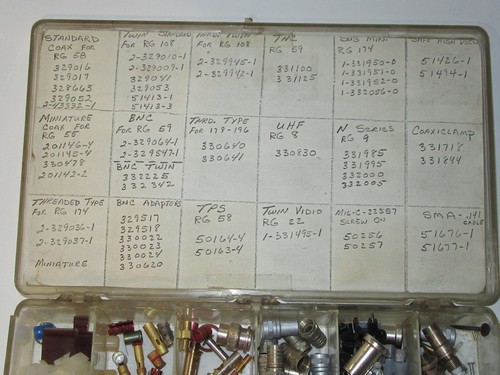 STANDARD
COAX FOR
RG 58
329016
329017
328663
329052
2-43332-1
TWIN STANDARD
FOR RG 108
2-329010-1
2-329009-1
329041
329053
51413-1
51413-3
TWIN
FOR RG 108
2-329945-1
2-329942-1
TNC
RG 59
331100
331125
SUB MINI
RG 174
1-331950-0
1-331951-0
1-331952-0
1-332056-0
SAFE HIGH
51426-1
51494-1
MINIATURE
COAX FOR
RG 55
201146-4
201145-4
330478
201142-2
BNC
FOR RG 59
2-329064-1
2-329547-1
BNC TWIN
332225
332342
THRD. TYPE
FOR 179-196
330640
330641
UHF
RG 8
330830
N SERIES
RG 9
331985
331995
332000
332005
COAXICLAMP
331718
331844
THREADED TYPE
FOR RG 174
2-329036-1
2-329037-1
MINIATURE
BNC ADAPTORS
329517
329518
330022
330023
330024
330620
TPS
RG 58
50164-4
50163-4
TWIN VIDIO
RG 22
1-331495-1
MIL-C-22557
SCREW ON
50256
50257
SMA-.141
CABLE
51676-1
51677-1